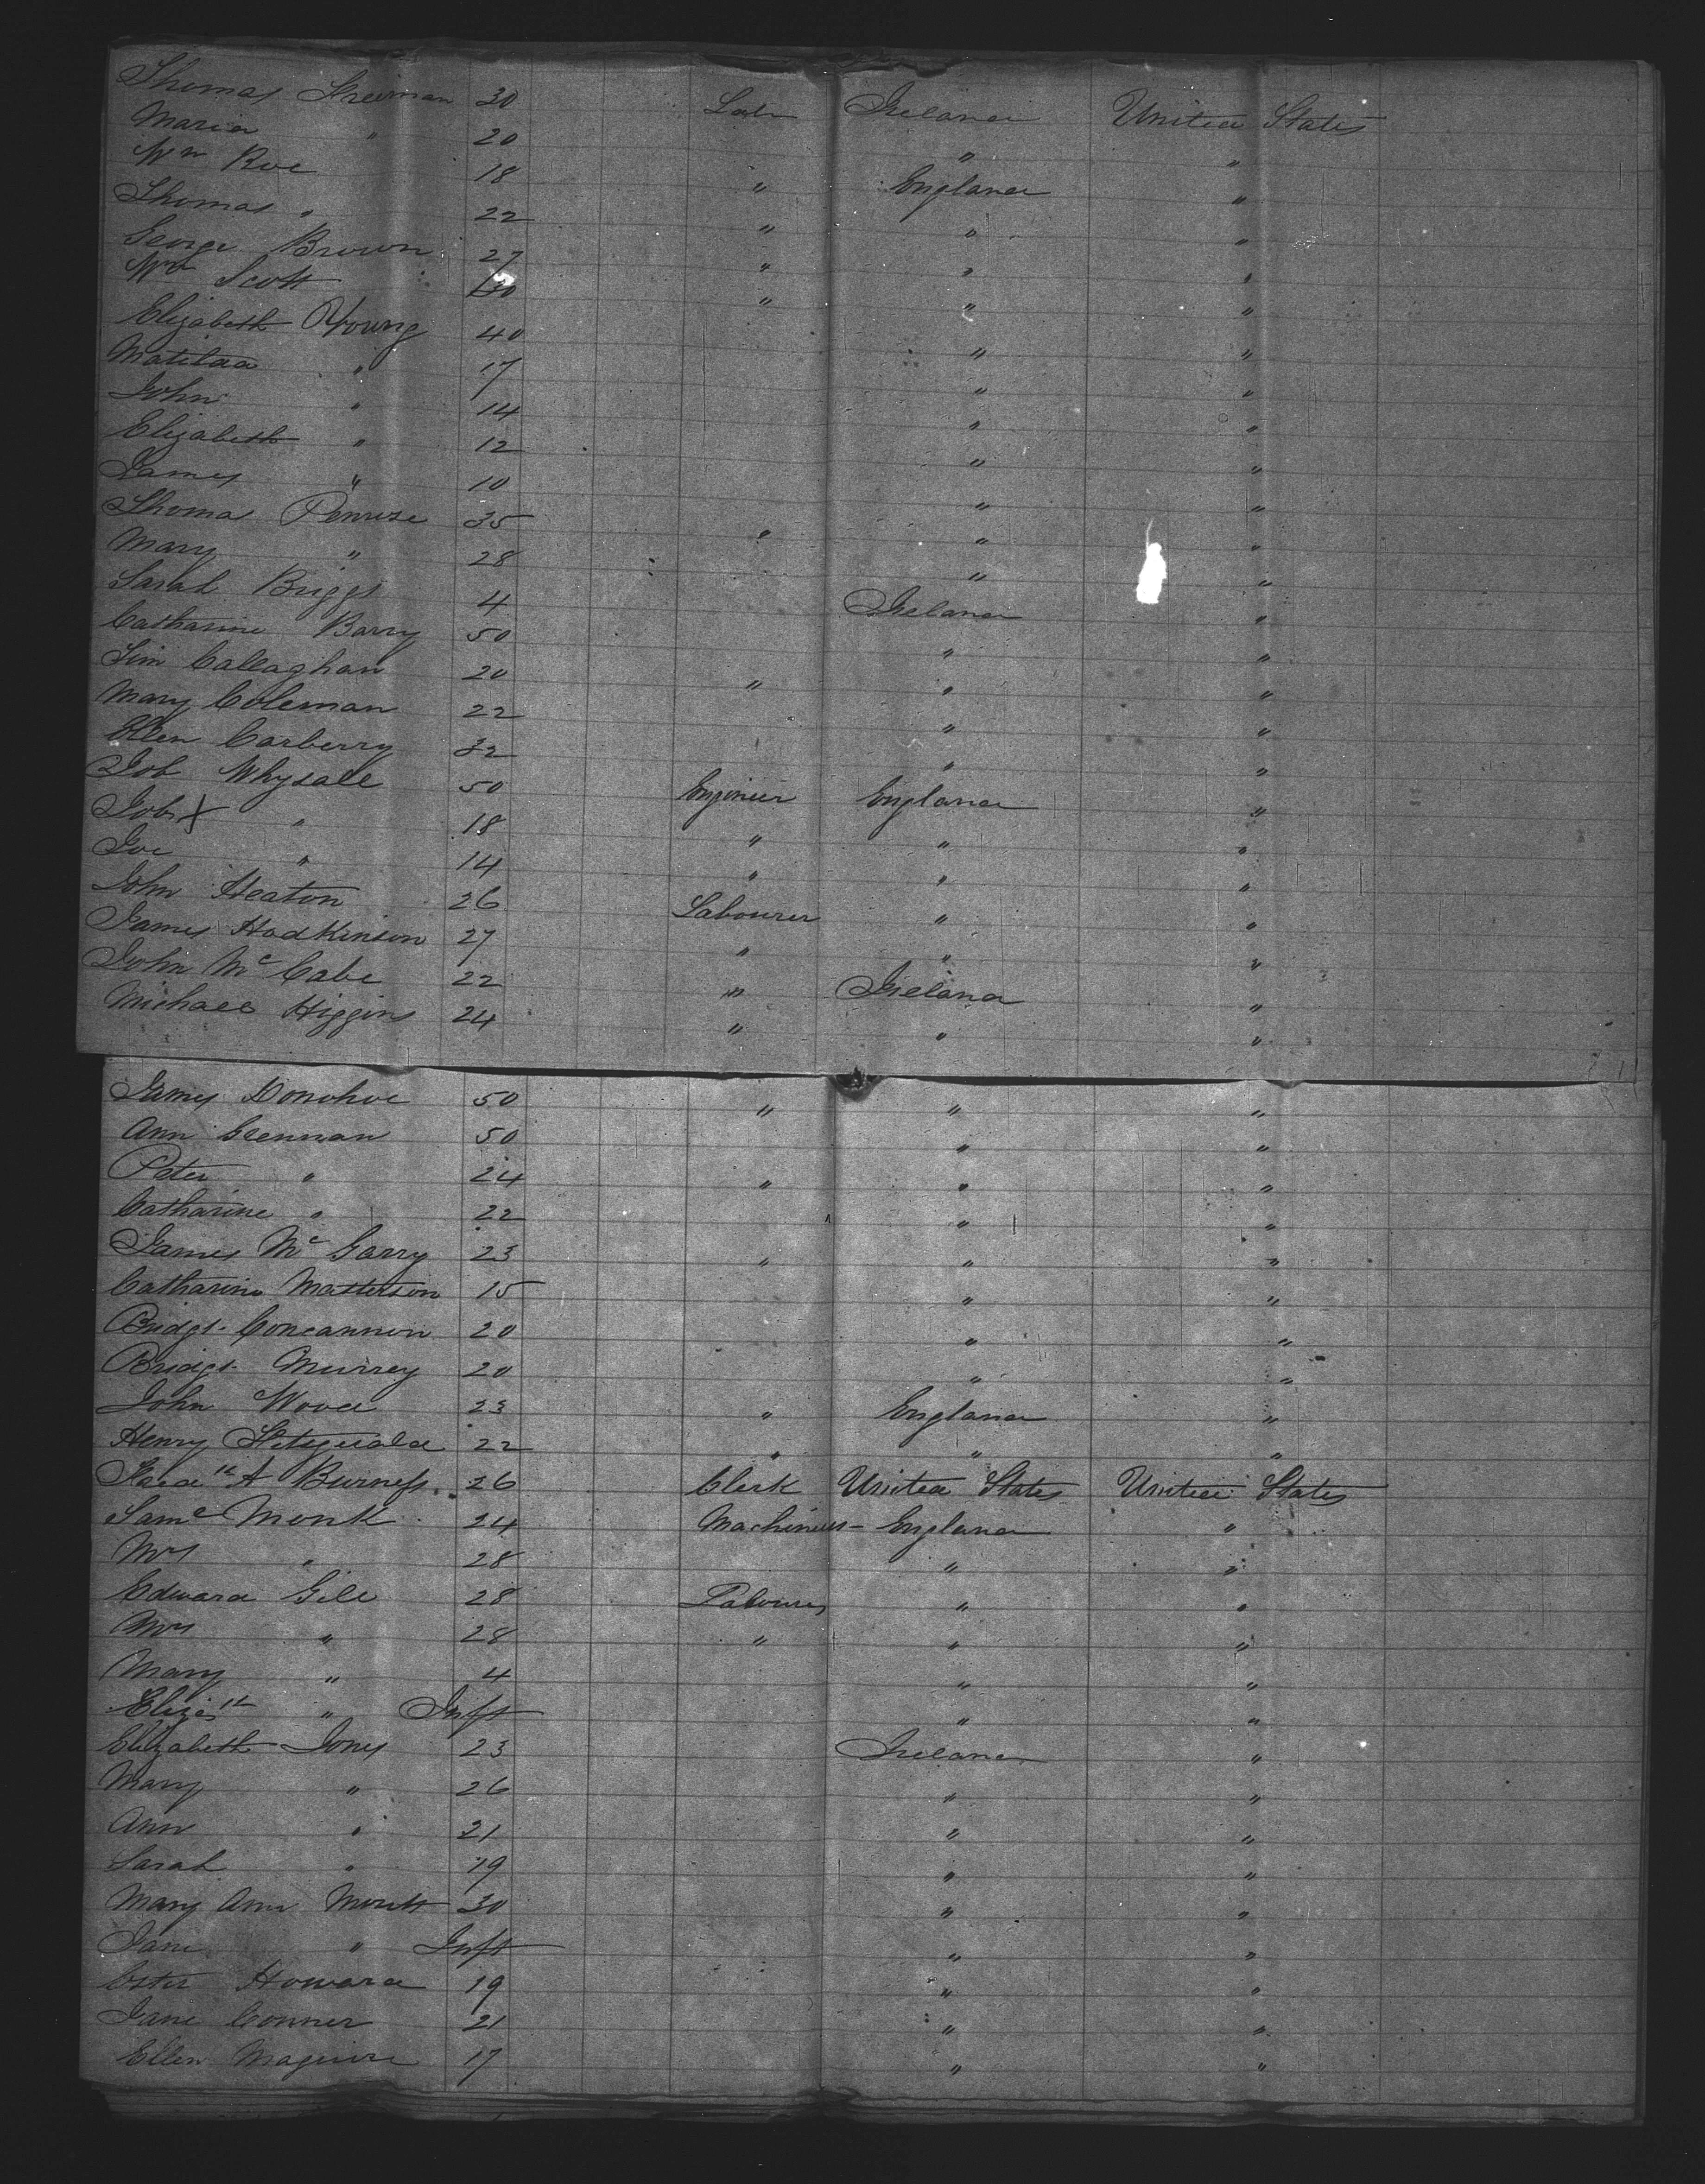 Thomas Freeman 30 Labr Ireland United States
Maria " 20 " "
Wm Roe 18 " England "
Thomas " 22 " " "
George Brown 27 " " "
Wm Scott 30 " " "
Elizabeth Young 40 " "
Matilda " 17 " "
John " 14 " "
Elizabeth " 12 " "
James " 10 " "
Thomas Penrose 35 " " "
Mary " 28 " "
Sarah Briggs 4 Ireland "
Catharine Barry 50 " "
Tim Callaghan 20 " " "
Mary Coleman 22 " "
Ellen Carberry 32 " "
Job Whysall 50 Engineer England "
Job X " 18 " " "
Joe " 14 " " "
John Heaton 26 Labourer " "
James Hodkinson 27 " " "
John Mc Cabe 22 " Ireland "
Michael Higgins 24 " " "
James Donohoe 50 " " "
Ann Glennan 50 " "
Peter " 24 " " "
Catharine " 22 " "
James Mc Garry 23 " " "
Catharine Matterson 15 " "
Bridgt Concannon 20 " "
Bridgt Murrey 20 " "
John Wood 23 " England "
Henry 22 " " "
A Burness 26 Clerk United States United States
Saml Monk 24 Machinist England "
Mrs " 28 " "
Edward Gill 28 Labourer " "
Mrs " 28 " " "
Mary " 4 " "
Elizth " Inft " "
Elizabeth Jones 23 Ireland "
Mary " 26 " "
Ann " 21 " "
Sarah " 19 " "
Mary Ann 30 " "
Jane " Inft " "
Ester Howard 19 " "
Jane Conner 21 " "
Ellen Maguire 17 " "